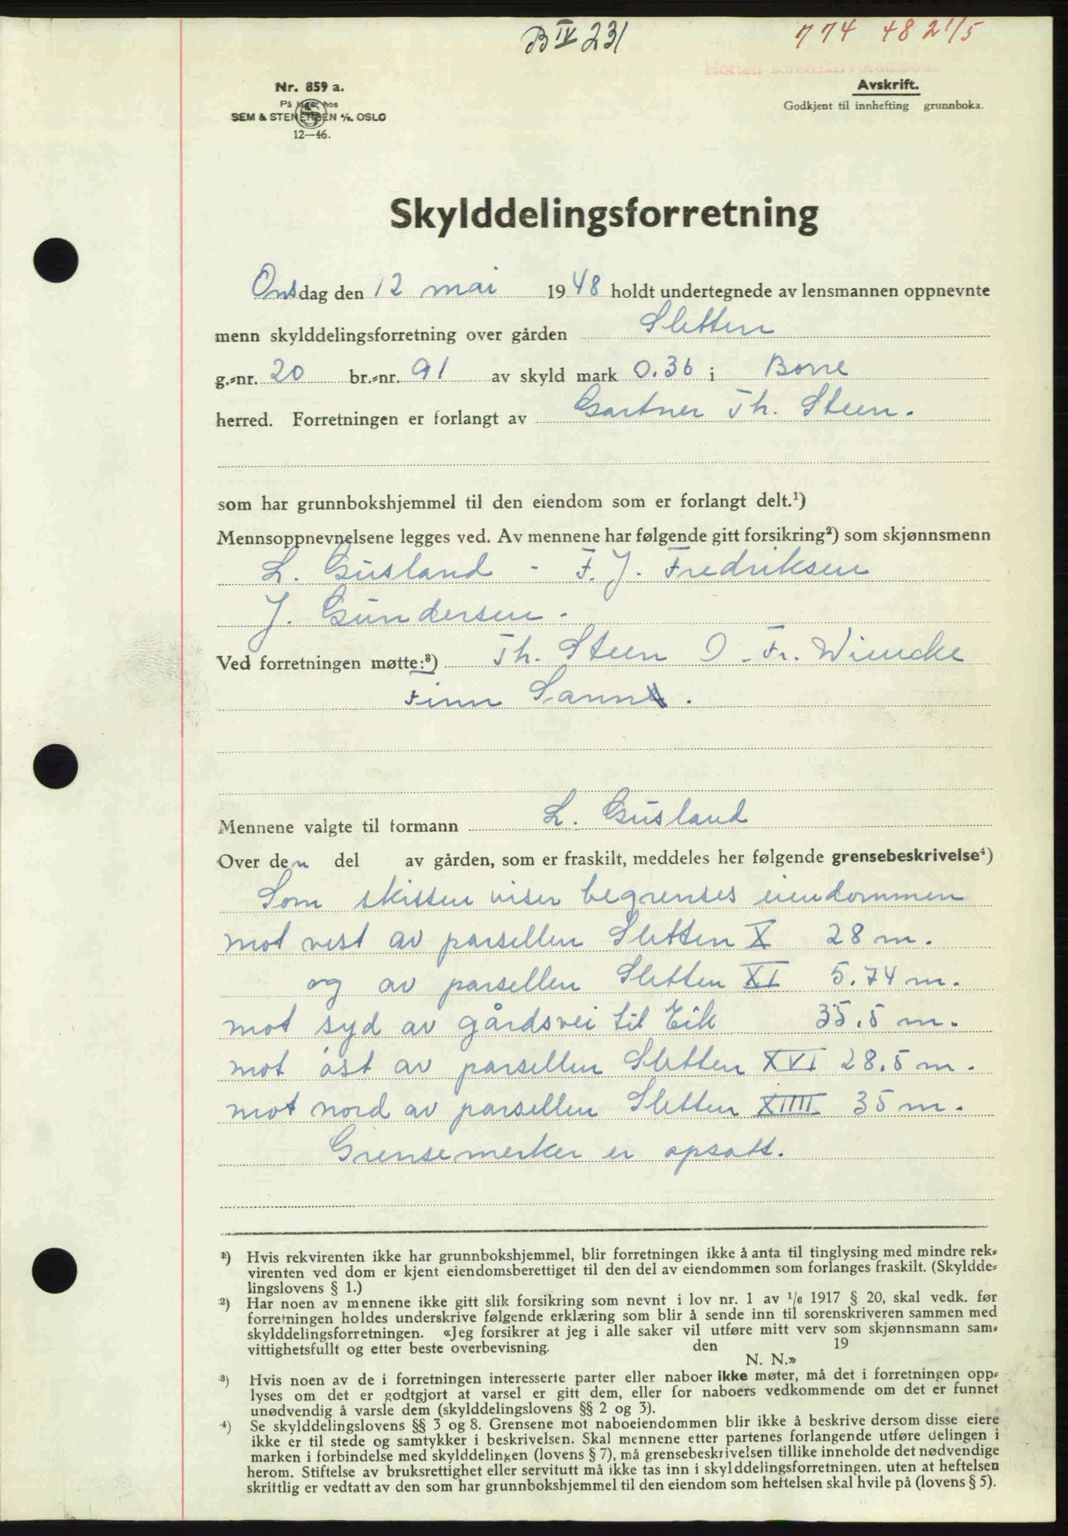 B IV 231
774 48 21/5
Nr. 859 a.
På lager hos
SEM & STENERSEN A/S, OSLO
12—46.
Avskrift.
Godkjent til innhefting grunnboka.
Skylddelingsforretning
Onsdag den 12 mai 1948 holdt undertegnede av lensmannen oppnevnte
menn skylddelingsforretning over gården Sletten
g.-nr. 20 br.-nr. 91 av skyld mark 0.36 i Borre
herred. Forretningen er forlangt av Gartner Th. Steen.
som har grunnbokshjemmel til den eiendom som er forlangt delt.¹)
Mennsoppnevnelsene legges ved. Av mennene har følgende gitt forsikring²) som skjønnsmenn
L. Gusland - F. J. Fredriksen
J. Gundersen.
Ved forretningen møtte:³) Th. Steen O. Fr. Wincke
Finn Sann .
Mennene valgte til formann L. Gusland
Over den del av gården, som er fraskilt, meddeles her følgende grensebeskrivelse⁴)
Som skissen viser begrenses eiendommen
mot vest av parsellen Sletten X 28 m.
og av parsellen Sletten XI 5.74 m.
mot syd av gårdsvei til Eik 35.5 m.
mot øst av parsellen Sletten XVI 28.5 m.
mot nord av parsellen Sletten XIIII 35 m.
Grensemerker er opsatt.
¹) Hvis rekvirenten ikke har grunnbokshjemmel, blir forretningen ikke å anta til tinglysing med mindre rek-
virenten ved dom er kjent eiendomsberettiget til den del av eiendommen som forlanges fraskilt. (Skyldde-
lingslovens § 1.)
²) Har noen av mennene ikke gitt slik forsikring som nevnt i lov nr. 1 av ¹/₆ 1917 § 20, skal vedk. før
forretningen holdes underskrive følgende erklæring som blir å sende inn til sorenskriveren sammen med
skylddelingsforretningen. «Jeg forsikrer at jeg i alle saker vil utføre mitt verv som skjønnsmann sam-
vittighetsfullt og etter beste overbevisning. den 19
N. N.»
³) Hvis noen av de i forretningen interesserte parter eller naboer ikke møter, må det i forretningen opp-
lyses om det er godtgjort at varsel er gitt dem, eller for naboers vedkommende om det er funnet
unødvendig å varsle dem (skylddelingslovens §§ 2 og 3).
⁴) Se skylddelingslovens §§ 3 og 8. Grensene mot naboeiendommen blir ikke å beskrive dersom disse eiere
ikke er til stede og samtykker i beskrivelsen. Skal mennene etter partenes forlangende utføre delingen i
marken i forbindelse med skylddelingen (lovens § 7), må grensebeskrivelsen tillike inneholde det nødvendige
herom. Stiftelse av bruksrettighet eller servitutt må ikke tas inn i skylddelingsforretningen, uten at heftelsen
skriftlig er vedtatt av den som har grunnbokshjemmel til den eiendom som heftelsen skal hvile på (lovens § 5).